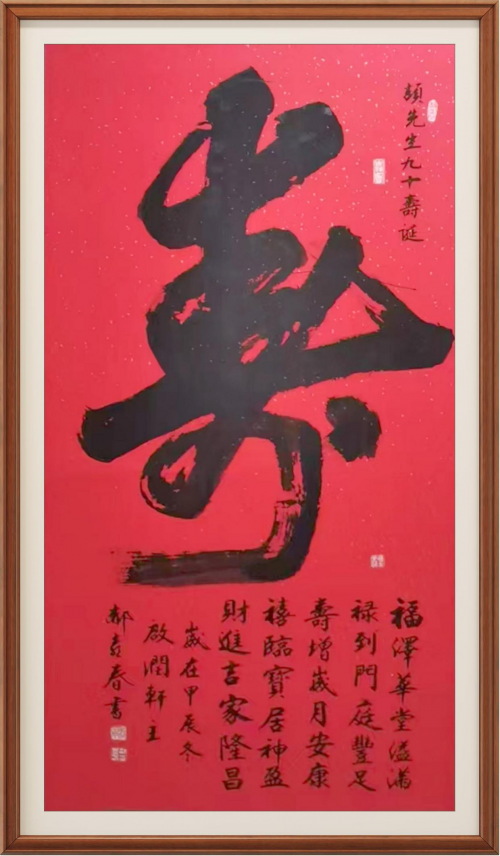 顏先生九十壽誕
壽
福澤華堂溢滿
禄到門庭豐足
壽增嵗月安康
禧臨寶居神盈
財進吉家隆昌
嵗在甲辰冬
啟潤軒主
郝春書